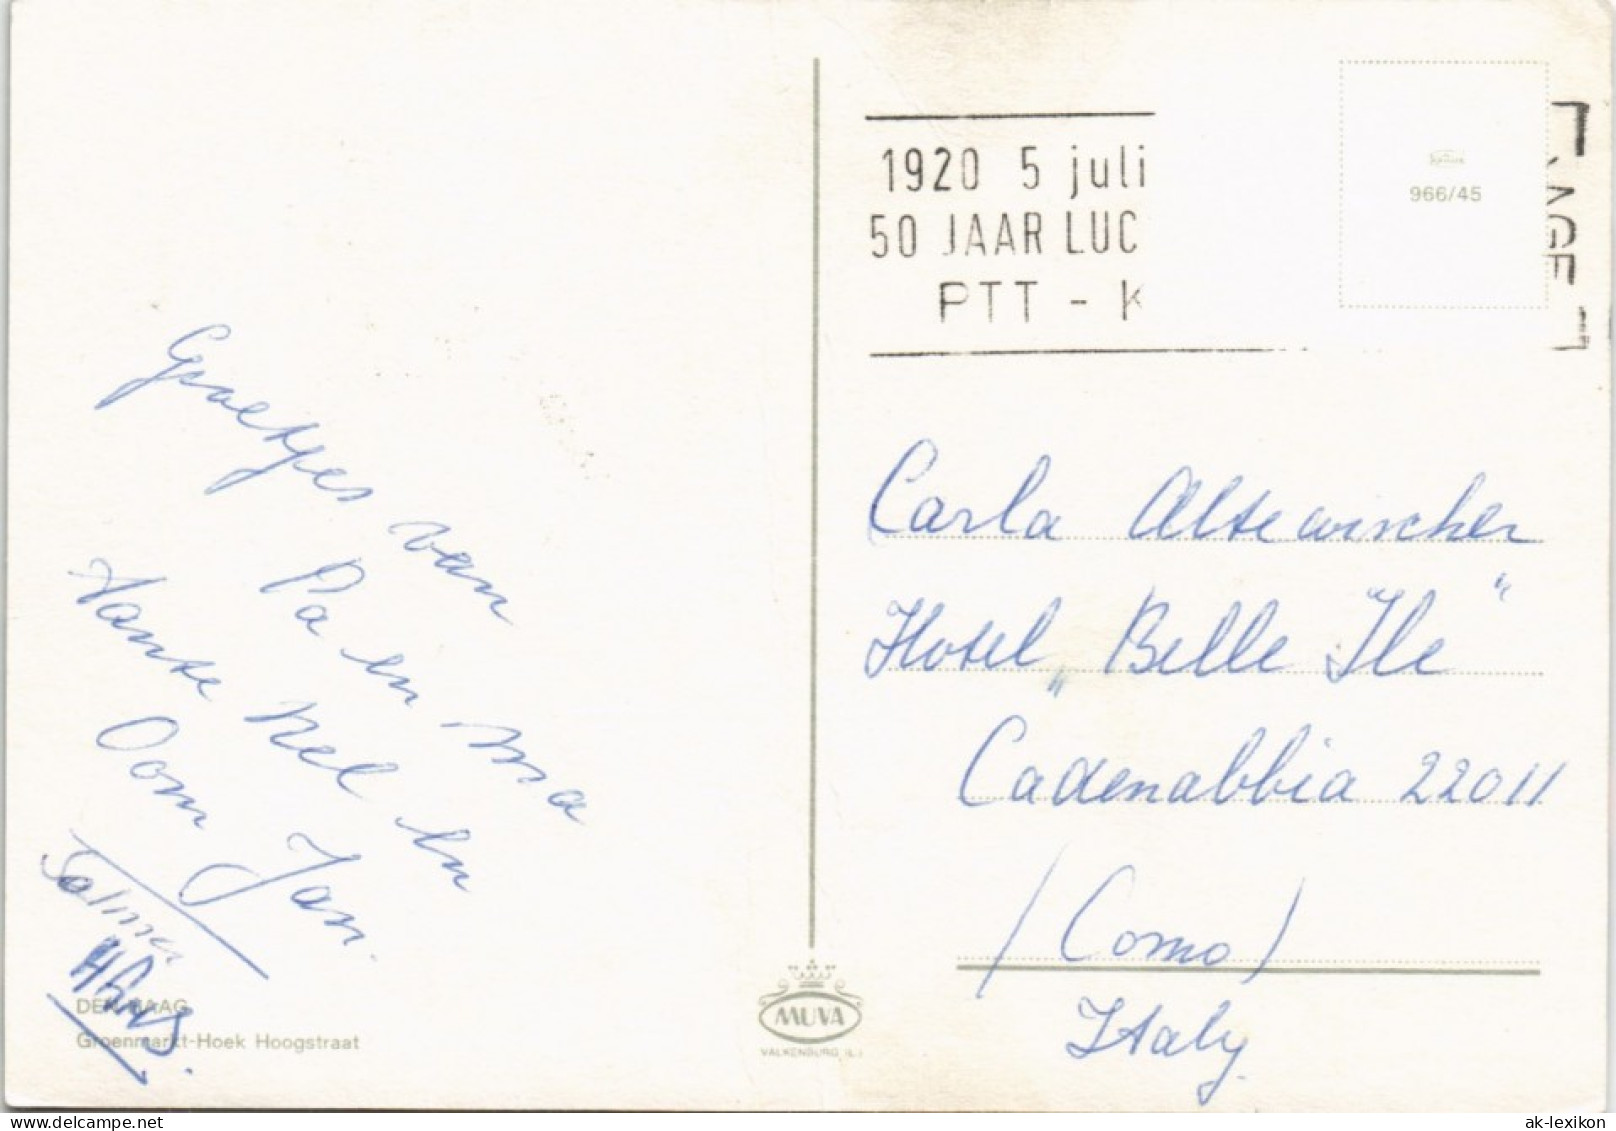 Groetjes van
Pa en ma
Tante Nel en
Oom Jan.
DEN HAAG
Groenmarkt-Hoek Hoogstraat
MUVA
VALKENBURG (L.)
1920 5 juli
50 JAAR LUC
PTT - K
966/45
Carla Altewischer
Hotel „Belle Ile“
Cadenabbia 22011
(Como)
Italy
ak-lexikon